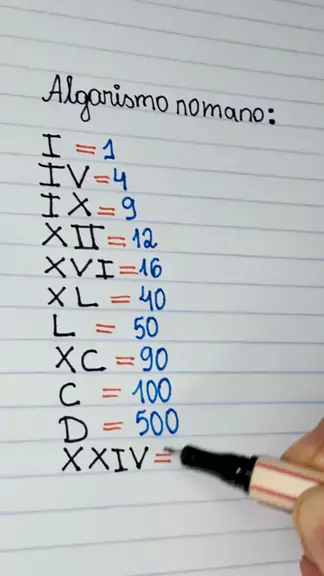 Algarismo nomano:
I = 1
IV = 4
IX = 9
XII = 12
XVI = 16
XL = 40
L = 50
XC = 90
C = 100
D = 500
XXIV =